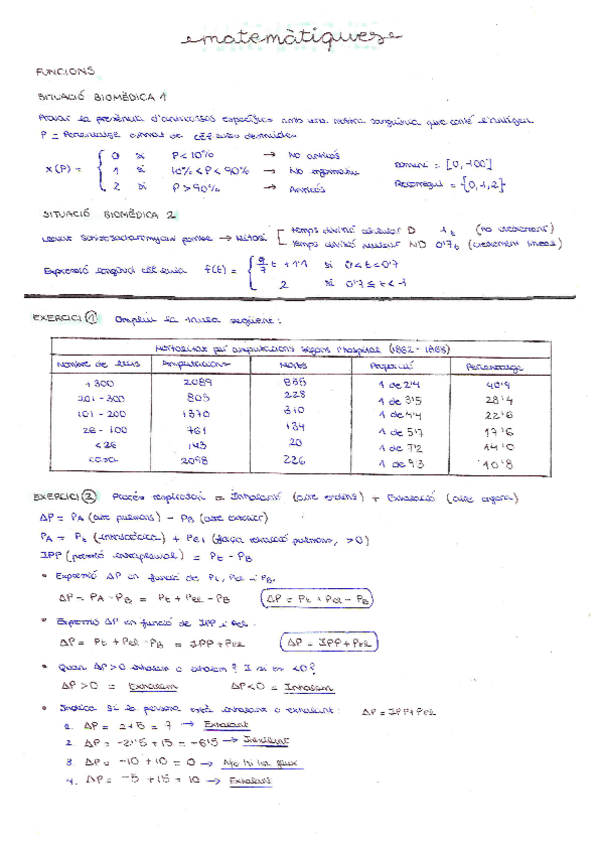 matemàtiques
FUNCIONS
SITUACIÓ BIOMÈDICA 1
Provar la presència d'anticossos específics amb una mostra sanguínia que conté l'antigen
P = Percentatge
x(P) = 0 si P<10% → No anticòs
1 si 10% < P < 90% →
2 si P > 90% → Anticòs
Domini = [0, 100]
Recorregut = {0,1,2}
SITUACIÓ BIOMÈDICA 2
→ Mitosi
temps divisió cel·lular D 1t (no creixement)
temps divisió nuclear ND 0'7t (creixement lineal)
Expressió longitud cèl·lula f(t) = 9/7 t + 1'1 si 0<t<0'7
2 si 0'7 ≤ t < 1
EXERCICI 1 Omplir la taula següent:
Mortalitat per amputacions segons l'hospital
Nombre de llits Amputacions Morts Proporció Percentatge
+300 2089 855 1 de 2'4 40'9
201 - 300 803 228 1 de 3'5 28'4
101 - 200 1370 310 1 de 4'4 22'6
26 - 100 761 134 1 de 5'7 17'6
<26 143 20 1 de 7'2 14'0
casa 2098 226 1 de 9'3 10'8
EXERCICI 2 Procés respiració = Inhalació (aire endins) + Exhalació (aire enfora)
ΔP = PA (aire pulmons) - PB (aire exterior)
PA = Pt (intratoràcica) + Pel (força retracció pulmons, >0)
IPP (pressió intrapleural) = Pt - PB
• Expressió ΔP en funció de Pt, Pel i PB.
ΔP = PA - PB = Pt + Pel - PB ΔP = Pt + Pel - PB
• Expressió ΔP en funció de IPP i Pel.
ΔP = Pt + Pel - PB = IPP + Pel ΔP = IPP + Pel
• Quan ΔP>0 inhalem o exhalem? I si és <0?
ΔP > 0 = Exhalem ΔP < 0 = Inhalem
• Indica si la persona està inhalant o exhalant: ΔP = IPP + Pel
1. ΔP = 2+5 = 7 → Exhalant
2. ΔP = -21'5 + 15 = -6'5 → Inhalant
3. ΔP = -10 + 10 = 0 → No hi ha flux
4. ΔP = -5 + 15 = 10 → Exhalant